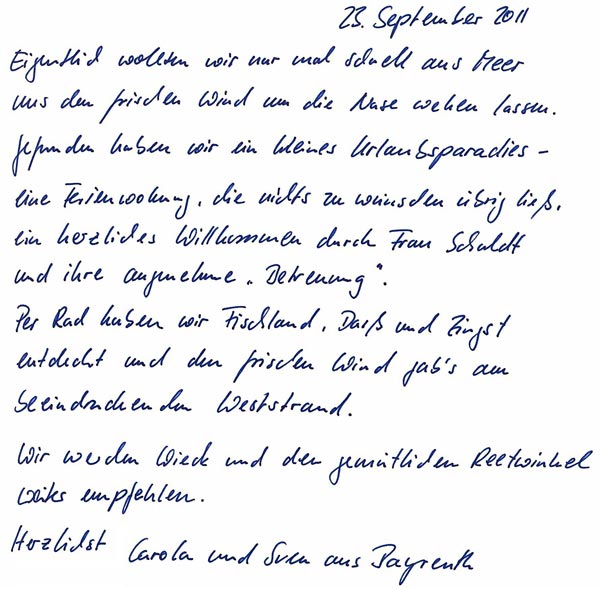 23. September 2011
Eigentlich wollten wir nur mal schnell ans Meer
uns den frischen Wind um die Nase wehen lassen.
Gefunden haben wir ein kleines Urlaubsparadies -
eine Ferienwohnung, die nichts zu wünschen übrig ließ,
ein herzliches Willkommen durch Frau Schuldt
und ihre angenehme "Betreuung".
Per Rad haben wir Fischland, Darß und Zingst
entdeckt und den frischen Wind gab's am
beeindruckenden Weststrand.
Wir werden Wieck und den gemütlichen Reetwinkel
weiter empfehlen.
Herzlichst Carola und Sven aus Bayreuth